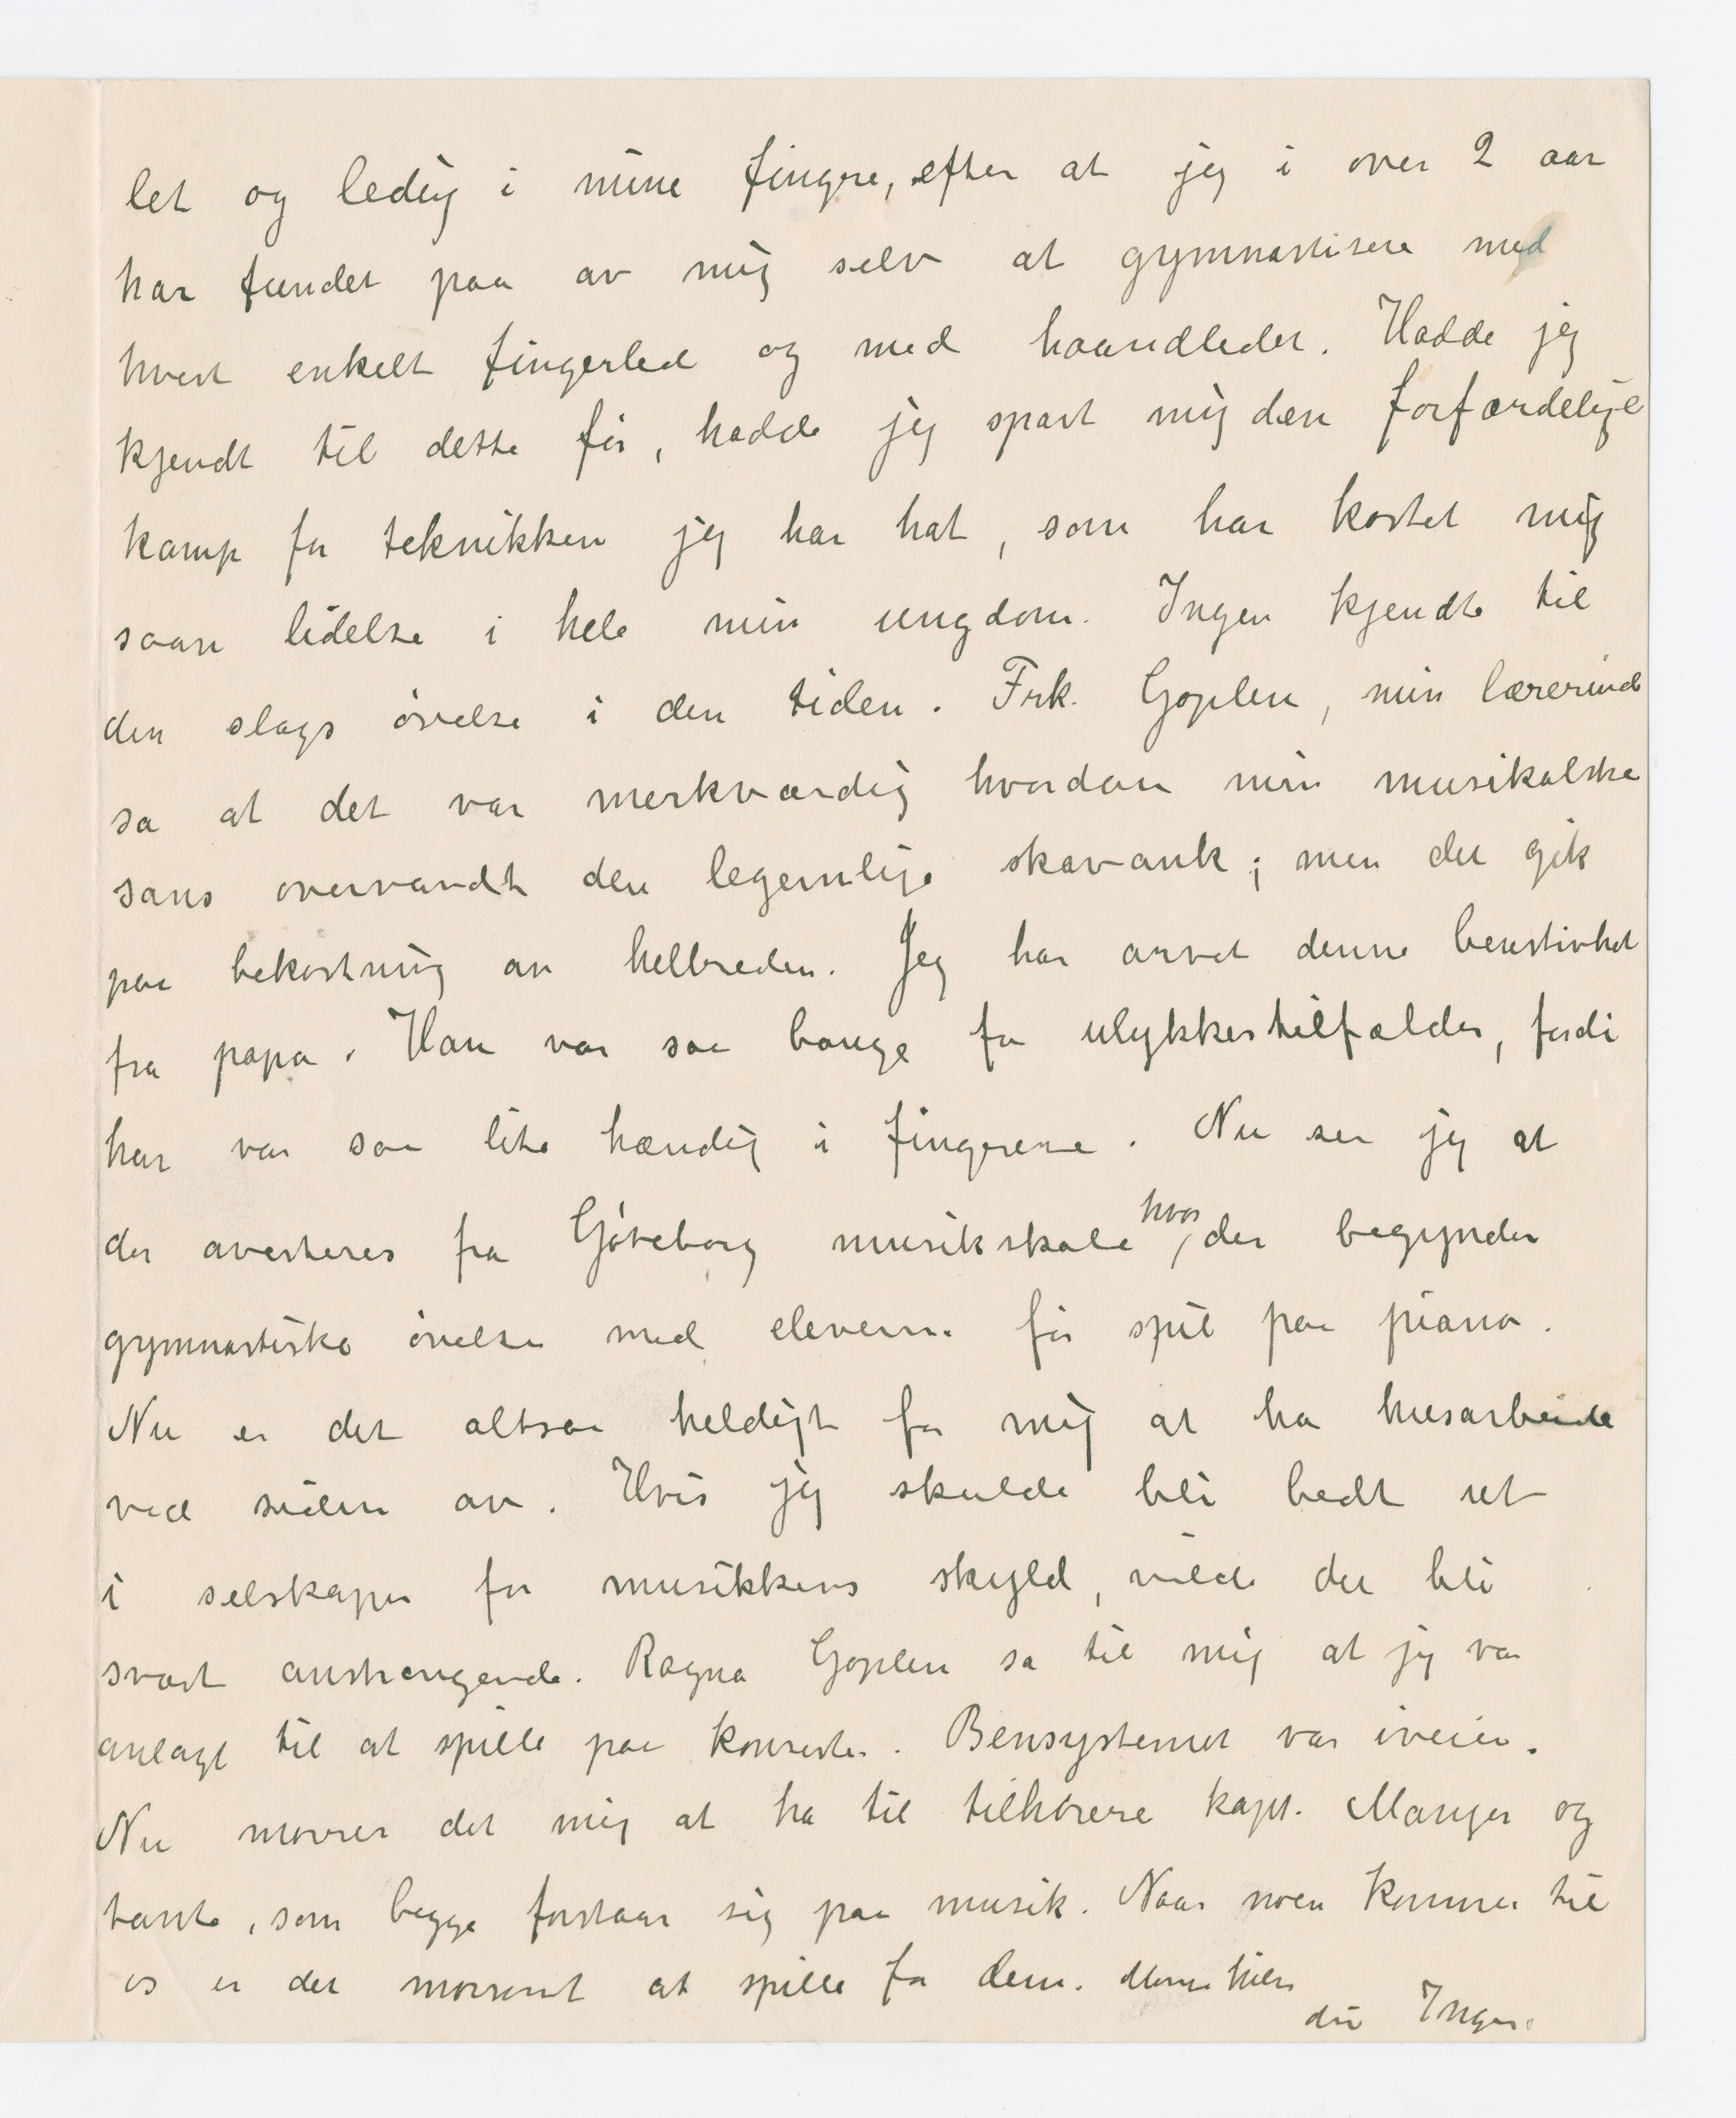 let og ledig i mine fingre, efter at jeg i over 2 aar
har fundet paa av mig selv at gymnastisere med
hvert enkelt fingerled og med haandledet. Hadde jeg
kjendt til dette før, hadde jeg spart mig den forfærdelige
kamp for teknikken jeg har hat, som har kostet mig
saan lidelse i hele min ungdom. Ingen kjendte til
den slags øvelse i den tiden. Frk. Goplen, min lærerinde
sa at det var merkværdig hvordan min musikalske
sans overvandt den legemlige skavank; men det gik
paa bekostning av helbreden. Jeg har arvet denne benstivhet
fra papa. Han var saa bange for ulykkestilfælder, fordi
han var saa lite hændig i fingrene. Nu ser jeg at
der averteres fra Gøteborg musikskole hvor der begynder
gymnastiske øvelse med eleverne før spil paa piano.
Nu er det altsaa heldigt for mig at ha husarbeide
ved siden av. Hvis jeg skulde bli bedt ut
i selskaper for musikkens skyld, vilde det bli
svært anstrengende. Ragna Goplen sa til mig at jeg var
anlagt til at spille paa konserter. Bensystemet var iveien.
Nu morrer det mig at ha til tilhørere kapt. Manger og
tante, som begge forstaar sig paa musik. Naar noen kommer til
os er det morsomt at spille for dem. Mama hilser
din Inger.